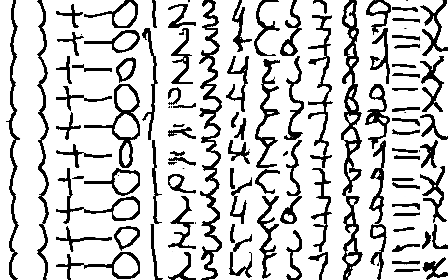 ( ) + - 0 1 2 3 4 5 7 8 9 = x
( ) + - 0 1 2 3 4 6 7 8 9 = x
( ) + - 0 1 2 3 4 5 7 8 9 = x
( ) + - 0 1 2 3 4 7 8 9 = x
( ) + - 0 1 2 3 4 7 8 9 = x
( ) + - 0 1 2 3 4 7 8 9 = x
( ) + - 0 1 2 3 4 5 7 8 9 = x
( ) + - 0 1 2 3 4 6 7 8 9 = x
( ) + - 0 1 2 3 4 5 7 8 9 = x
( ) + - 0 1 2 3 4 5 7 8 9 = x